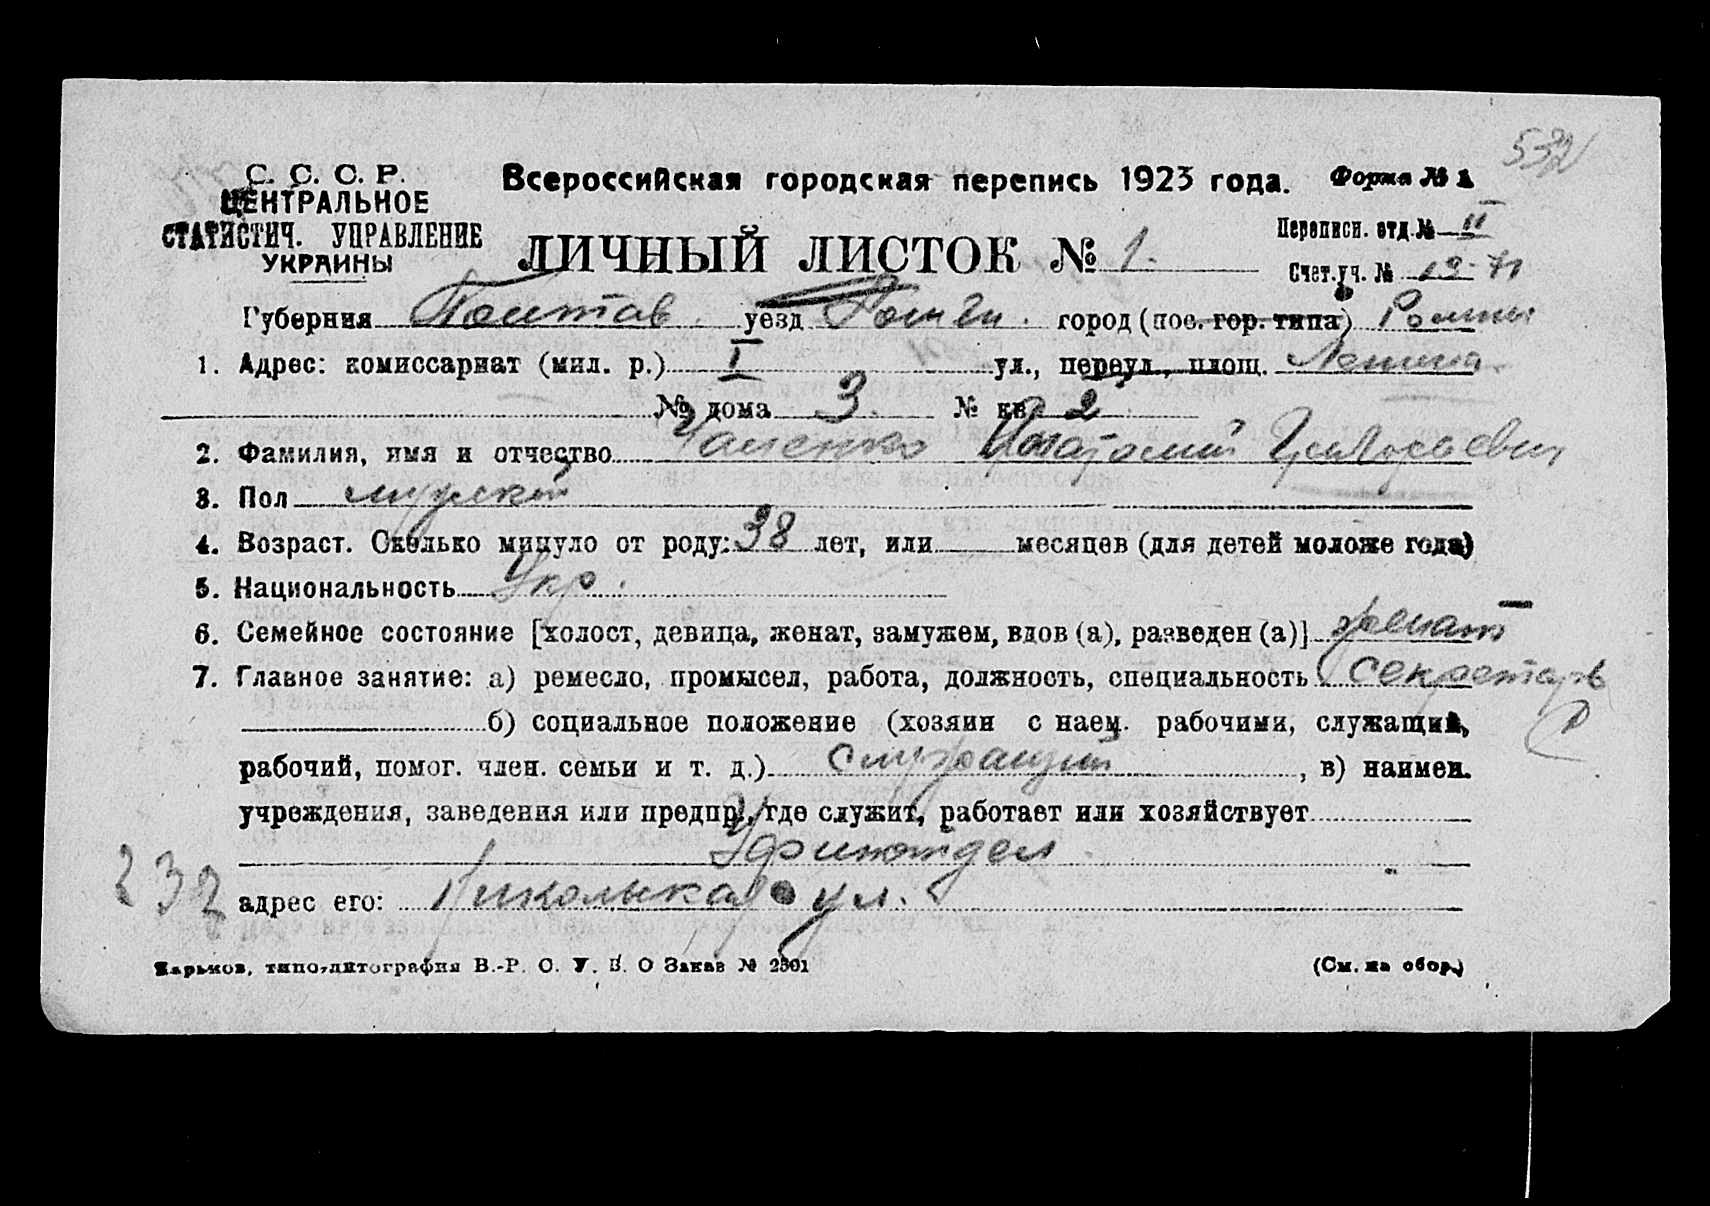 532
С. С. С. Р.
ЦЕНТРАЛЬНОЕ
СТАТИСТИЧ. УПРАВЛЕНИЕ
УКРАИНЫ
Всероссийская городская перепись 1923 года. Форма № 1
Переписн. отд. № II
ЛИЧНЫЙ ЛИСТОК № 1.
Счет. уч. № 19
Губерния Полтав. уезд город (пос. гор. типа) Ромны
1. Адрес: комиссариат (мил. р.) I ул., переул., площ. Ленина
№ дома 3. № кв. 2
2. Фамилия, имя и отчество Анатолий Григорьевич
3. Пол мужской
4. Возраст. Сколько минуло от роду: 38 лет, или месяцев (для детей моложе года)
5. Национальность Укр.
6. Семейное состояние [холост, девица, женат, замужем, вдов (а), разведен (а)] женат
7. Главное занятие: а) ремесло, промысел, работа, должность, специальность секретарь
б) социальное положение (хозяин с наем. рабочими, служащий,
рабочий, помог. член. семьи и т. д.) служащий, в) наимен.
учреждения, заведения или предпр., где служит, работает или хозяйствует
Уфинотдел
232 адрес его: ул.
Харьков, типо-литография В.-Р. О. У. В. О Заказ № 2501 (См. на обор.)